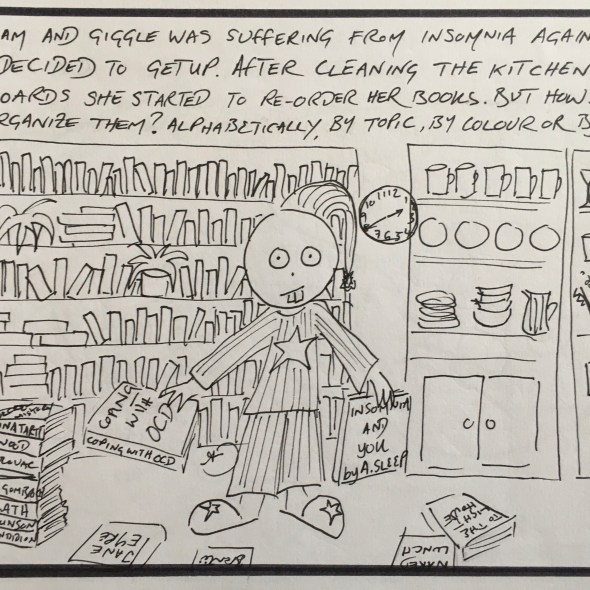 AM AND GIGGLE WAS SUFFERING FROM INSOMNIA AGAIN
DECIDED TO GETUP. AFTER CLEANING THE KITCHEN
OARDS SHE STARTED TO RE-ORDER HER BOOKS. BUT HOW
RGANIZE THEM? ALPHABETICALLY, BY TOPIC, BY COLOUR OR B
10 11 12 1
7 6 5 4
COPING
WITH
OCD
COPING WITH OCD
INSOMNIA
AND
YOU
by A. SLEEP
NATART
OOD
ROUAC
GOMBR
ATH
UNSON
JANE
EYRE
NAKED
LUNCH
TO THE